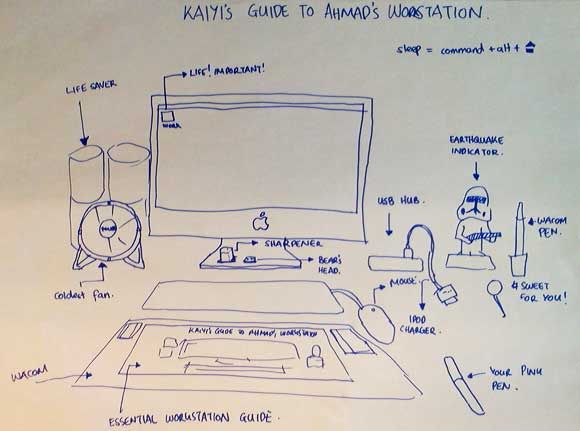 KAIYI'S GUIDE TO AHMAD'S WORKSTATION.
sleep = command + alt + ⏏
LIFE SAVER
LIFE! IMPORTANT!
WORK
EARTHQUAKE
INDICATOR.
USB HUB.
WACOM
PEN.
SHARPENER
BEAR'S
HEAD.
MOUSE.
A SWEET
FOR YOU!
Coldest fan.
IPOD
CHARGER.
KAIYI'S GUIDE TO AHMAD'S WORKSTATION
WACOM
YOUR PINK
PEN.
ESSENTIAL WORKSTATION GUIDE.